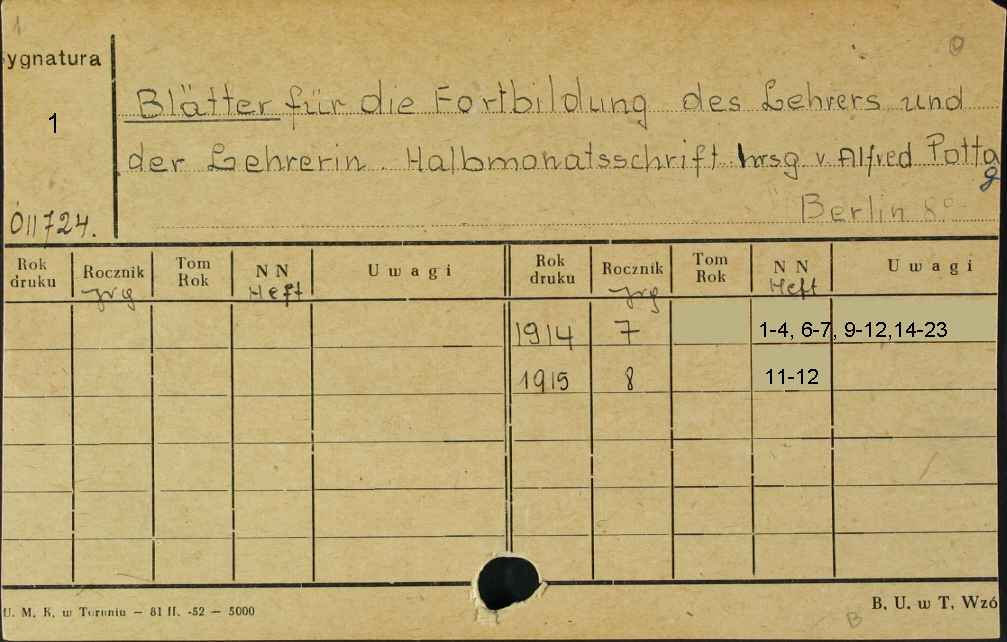 1
ygnatura
1
011724.
Blätter für die Fortbildung des Lehrers und
der Lehrerin. Halbmonatsschrift hrsg v. Alfred Pottag
Berlin 8°
Rok druku Rocznik Jrg Tom Rok NN Heft Uwagi Rok druku Rocznik Jrg Tom Rok NN Heft Uwagi
1914 7 1-4, 6-7, 9-12,14-23
1915 8 11-12
U. M. K. w Toruniu — 81 II. -52 — 5000
B. U. w T. Wzó
B